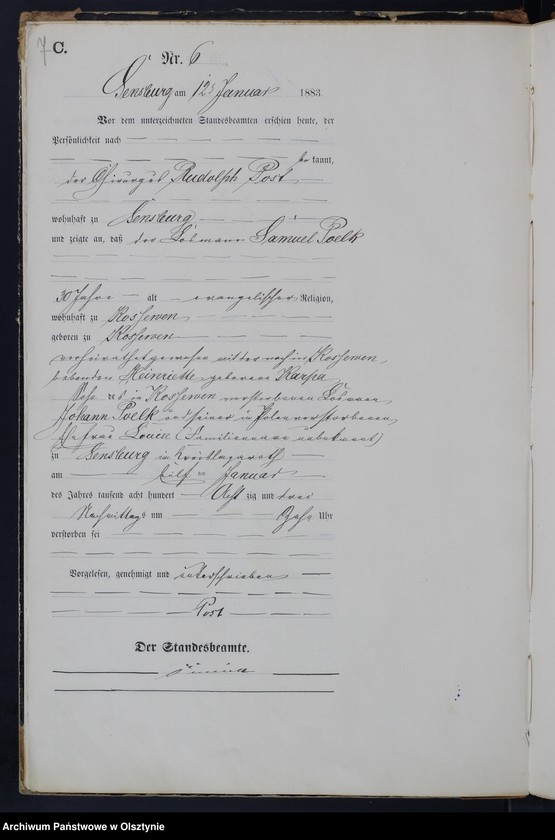 7 C.
Nr. 6
Sensburg am 12 Januar 1883.
Vor dem unterzeichneten Standesbeamten erschien heute, der
Persönlichkeit nach
be kannt,
der Chirurgus Rudolph Post
wohnhaft zu Sensburg
und zeigte an, daß der Losmann Samuel Poelk
30 Jahre alt evangelischer Religion,
wohnhaft zu Kossewen
geboren zu Kossewen
verheirathet gewesen mit der noch in Kossewen
lebenden Heinriette geborene Karpa
Sohn des in Kossewen verstorbenen Losmann
Johann Poelk und seiner in Polen verstorbenen
Ehefrau Louise (Familienname unbekannt)
zu Sensburg im Kreislazareth
am elf Januar
des Jahres tausend acht hundert Acht zig und drei
Nachmittags um Zehn Uhr
verstorben sei
Vorgelesen, genehmigt und unterschrieben
Post
Der Standesbeamte.
Archiwum Państwowe w Olsztynie